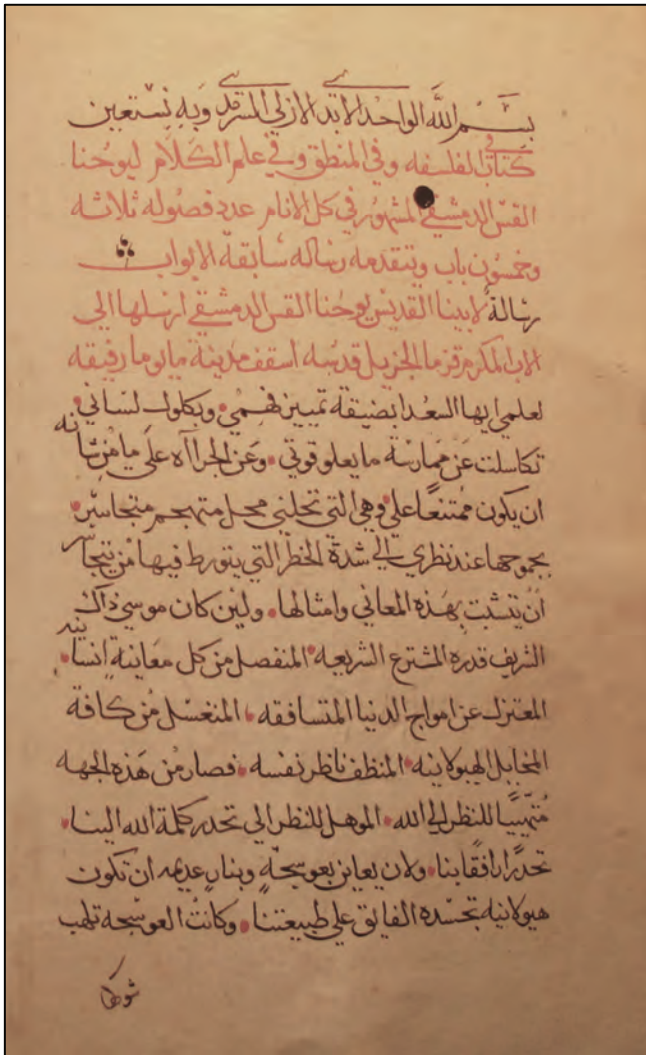 بسم الله الواحد الابدي الازلي السرمدي وبه نستعين
كتاب في الفلسفه وفي المنطق وفي علم الكلام ليوحنا
القس الدمشقي المشهور في كل الانام عدد فصوله ثلاثه
وخمسون باب ويتقدمه رساله سابقة الابواب
رسالة لابينا القديس يوحنا القس الدمشقي ارسلها الي
الاب المكرم قزما الجزيل قدسه اسقف مدينة مايوما رفيقه
لعلمي ايها السعدا بضيقة تمييز فهمي وبكلول لساني
تكاسلت عن ممارسة ما يعلو قوتي وعن الجراآه علي ما من شانه
ان يكون ممتنعًا علي وهي التي تحلني محل متهجم متجاسر
بجموحها عند نظري الي شدة الخطر التي يتورط فيها من يتجاسر
ان يتشبت بهذه المعاني وامثالها ولين كان موسي ذاك
الشريف قدره المشترع الشريعه المنفصل من كل معاينة انسانيه
المعتزل عن امواج الدنيا المتسافقه المنغسل من كافة
المخايل الهيولانيه المنظف ناظر نفسه فصار من هذه الجهه
متهييا للنظر الي الله الموهل للنظر الي تحدر كلمة الله الينا
تحدرًا رافقًا بنا ولان يعاين بعوسجةٍ وبنارٍ عديمه ان تكون
هيولانيه تجسده الفايق علي طبيعتنا وكانت العوسجه تلهب
شوكها